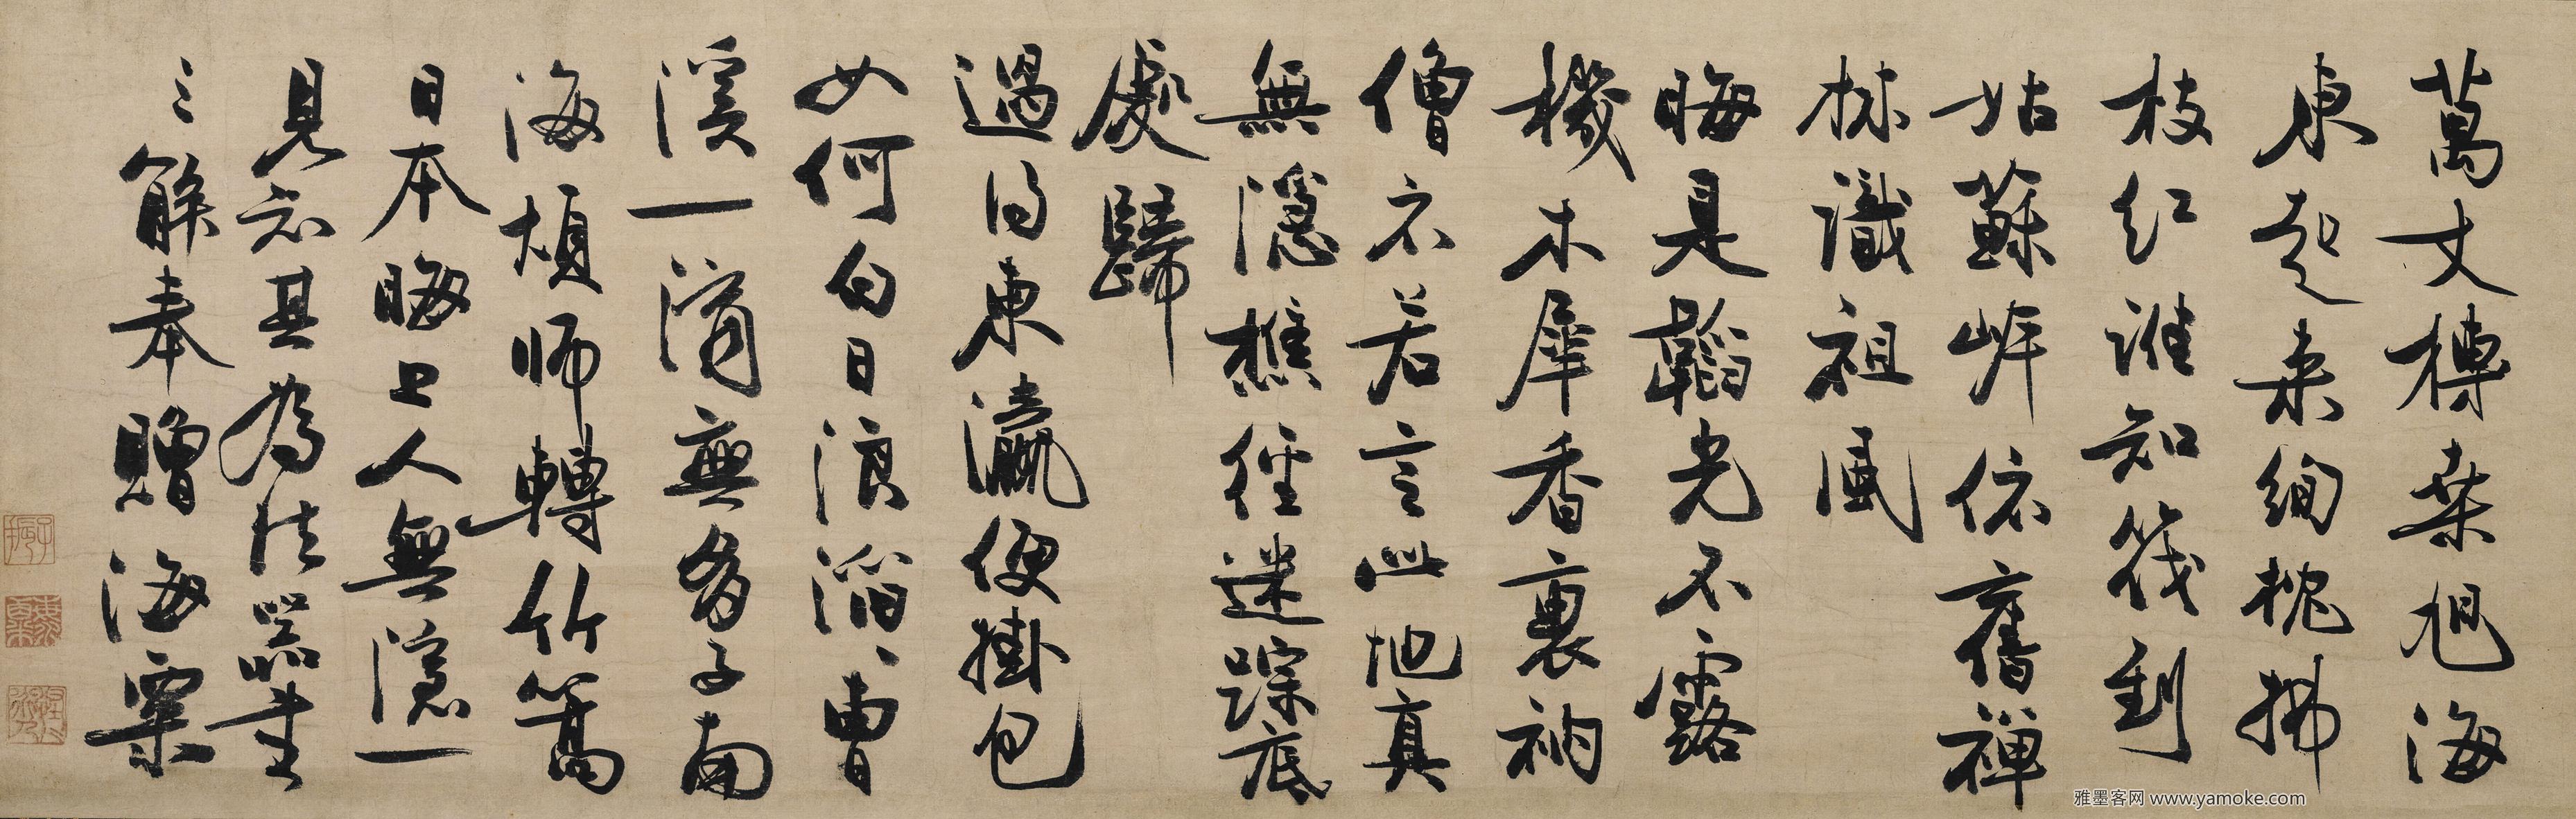 萬丈榑桑旭海
東起來絢枕拂
枝紅誰知筏到
姑蘇岸依舊禪
林識祖風
晦是韜光不露
機木犀香裏衲
僧衣若言此地真
無隱樵徑迷踪底
處歸
過得東瀛便掛包
如何白日浪滔〻曹
溪一滴無多子南
海煩師轉竹篙
日本晦上人無隱一
見知其為法器書
三解奉贈海粟
雅墨客网 www.yamoke.com